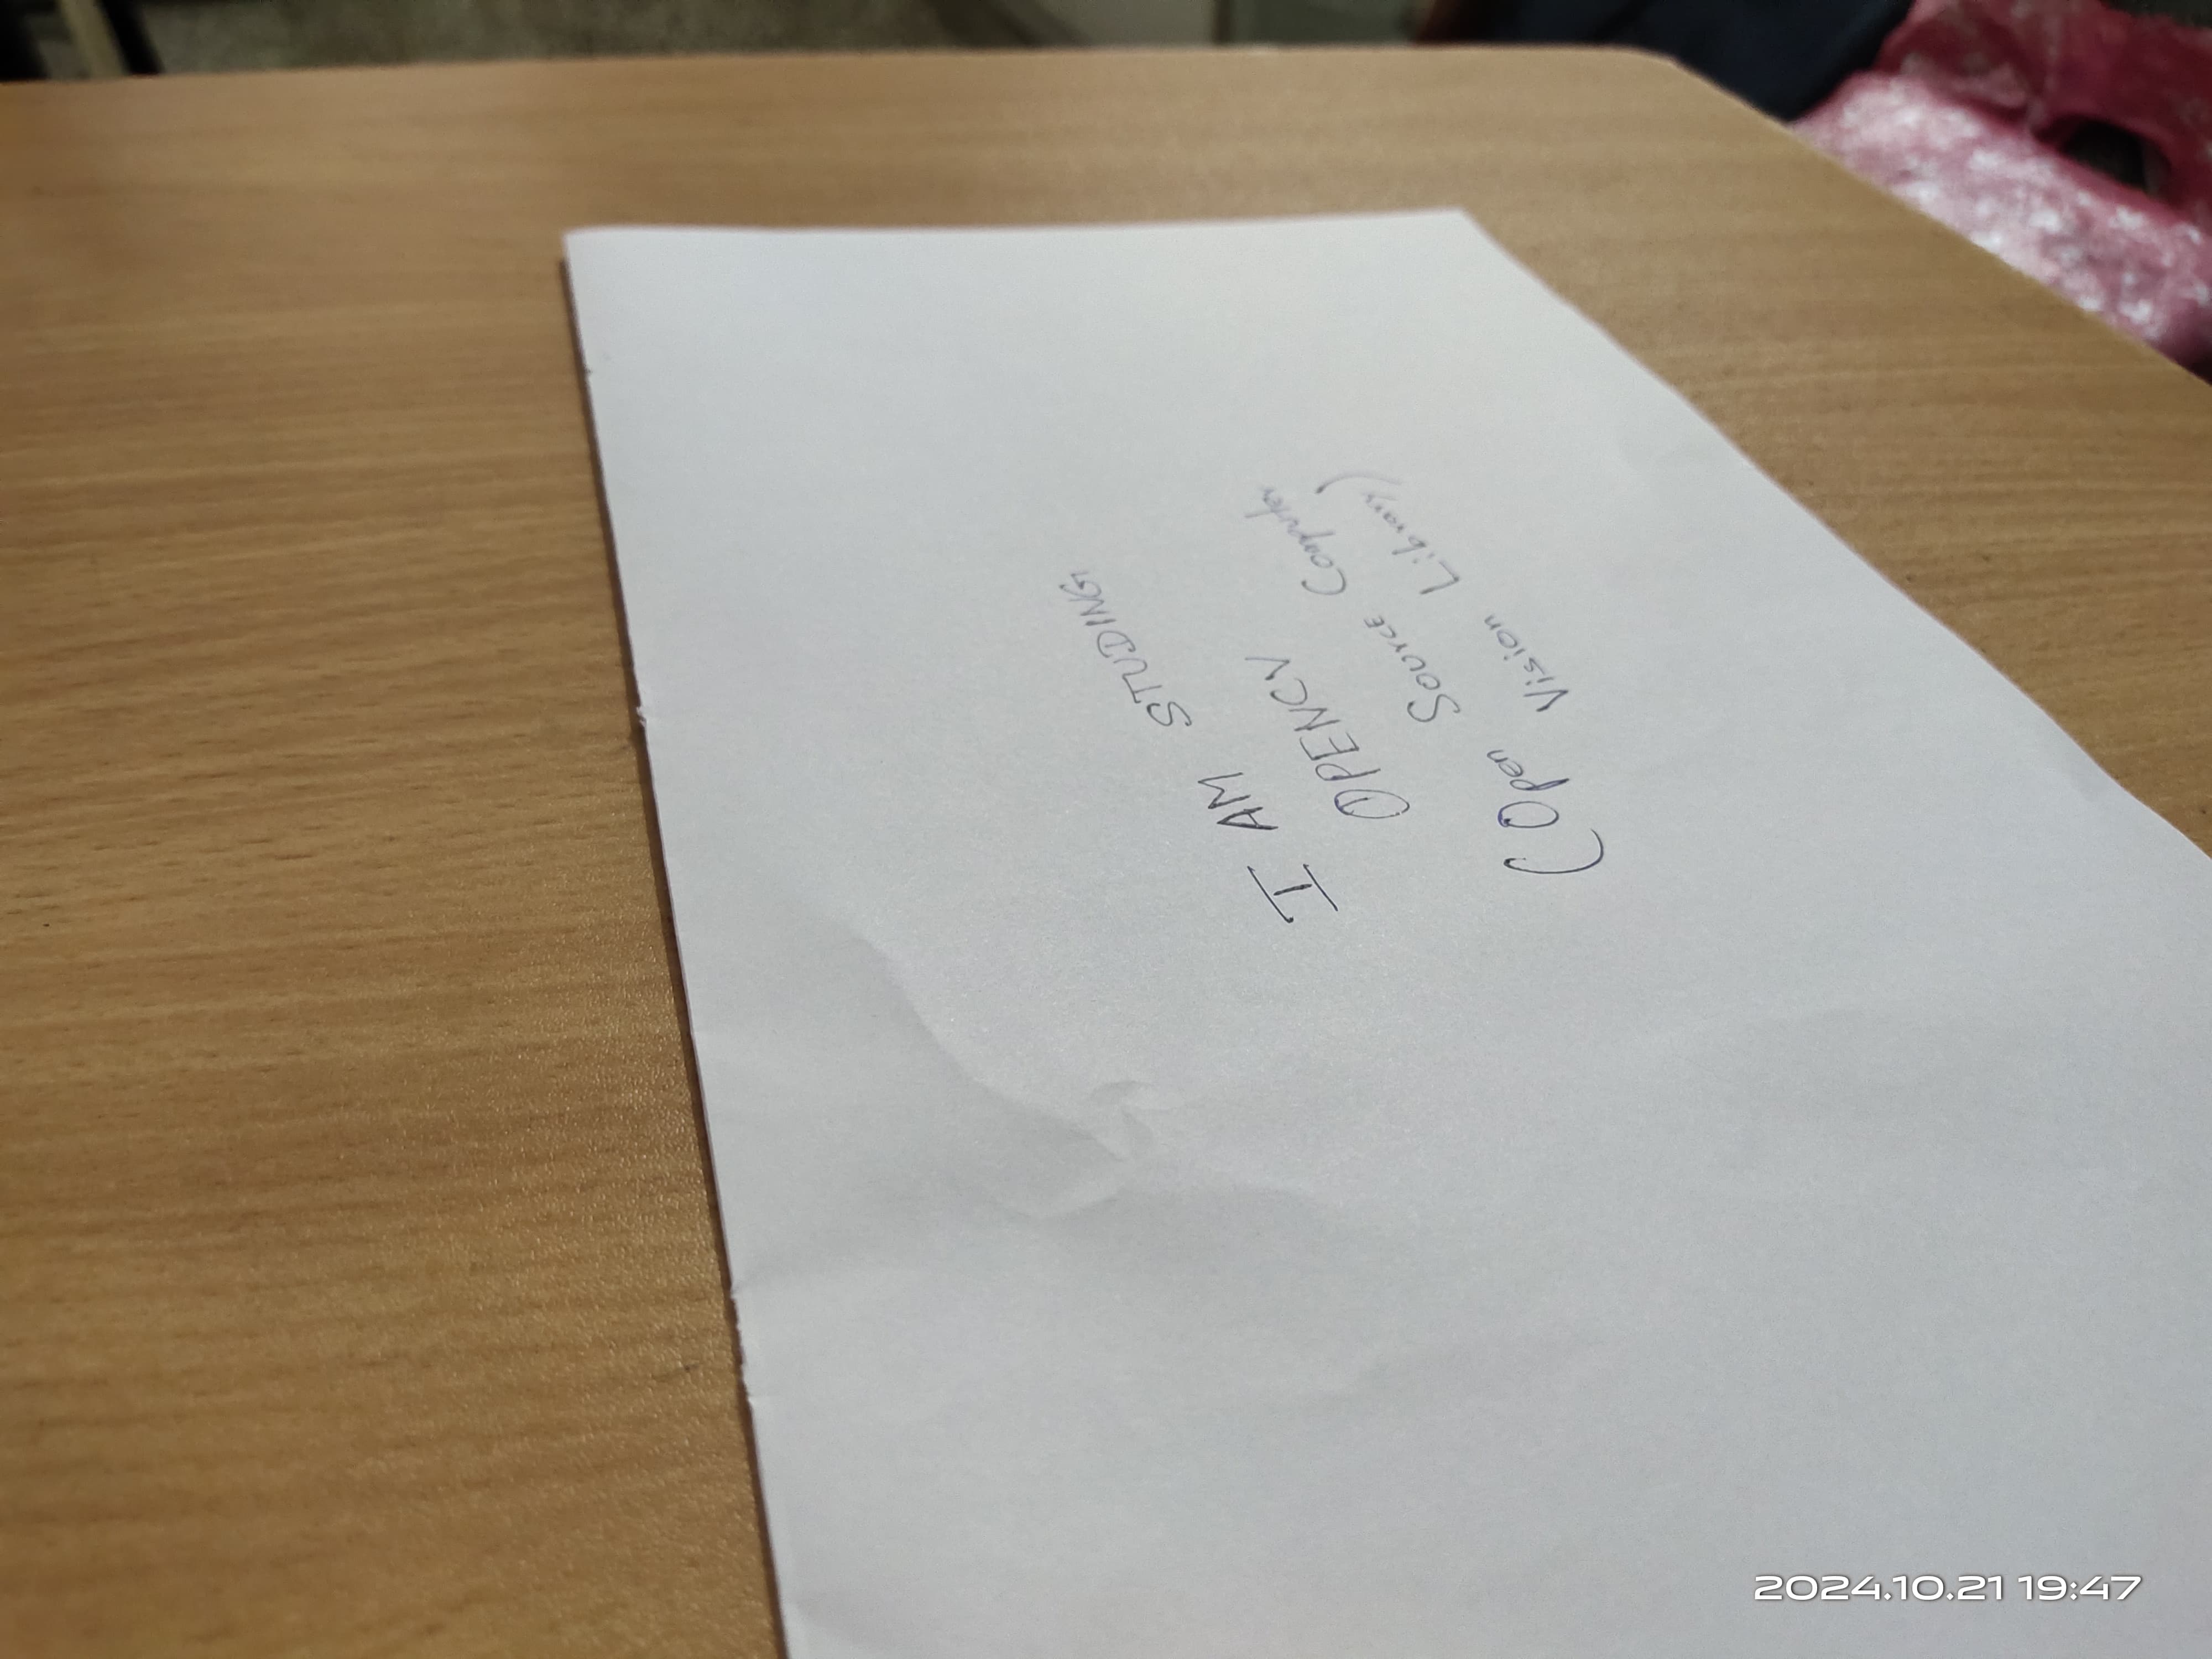 I AM STUDING
OPENCV
(Open Source Coputer
Vision Library)
2024.10.21 19:47